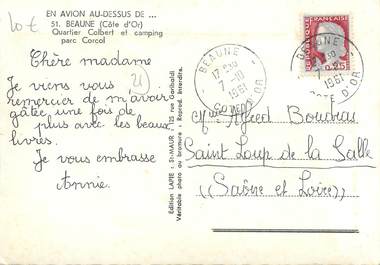 EN AVION AU-DESSUS DE ...
51. BEAUNE (Côte d'Or)
Quartier Colbert et camping
parc Corcol
10€
Chère madame
Je viens vous
remercier de m'avoir
gâtée une fois de
plus avec les beaux
livres.
Je vous embrasse
Annie.
Edition LAPIE : St-MAUR / 125 rue Garibaldi
Véritable photo au bromure - Reprod. interdite.
BEAUNE
7-10
1961
CÔTE D'OR
BEAUNE
1961
CÔTE D'OR
0,25
Alfred Boudras
Saint Loup de la Salle
((Saône et Loire))